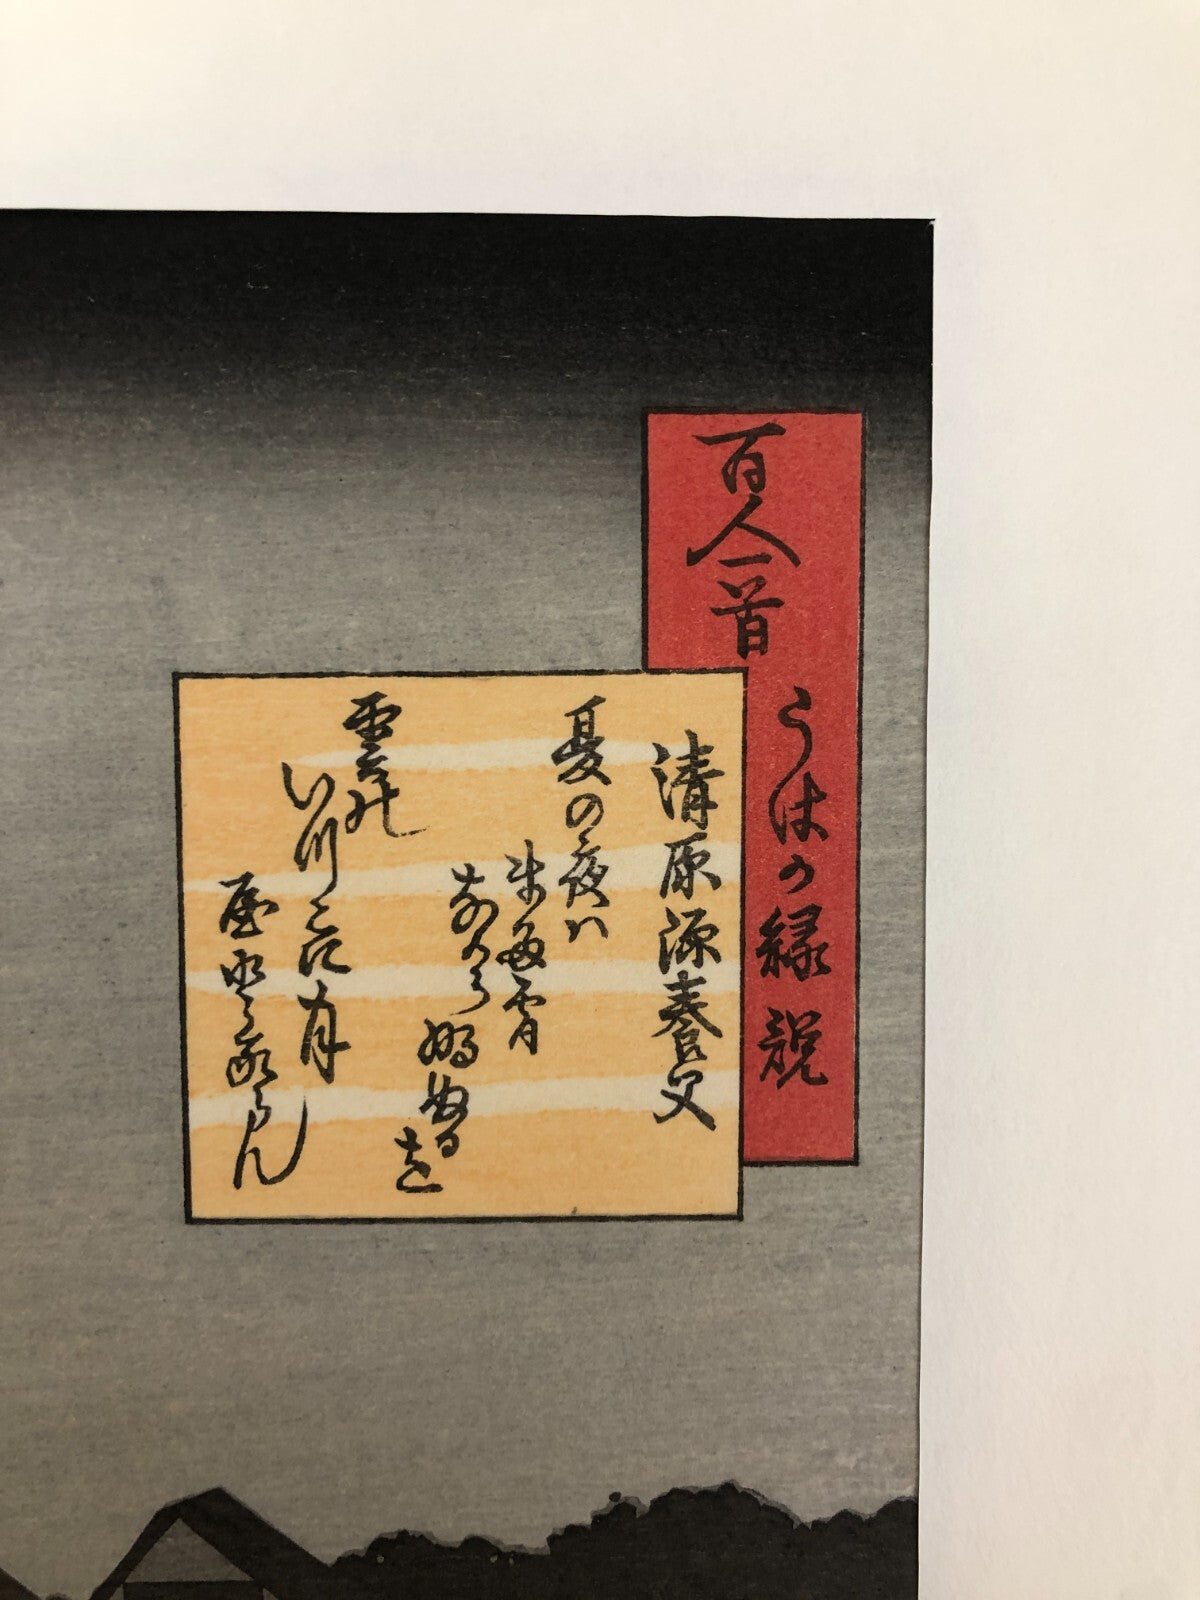 百人一首
うはか縁説
清原深養父
夏の夜は
まだ宵
ながら明ぬる
を
雲の
いづこに月
やどるらん